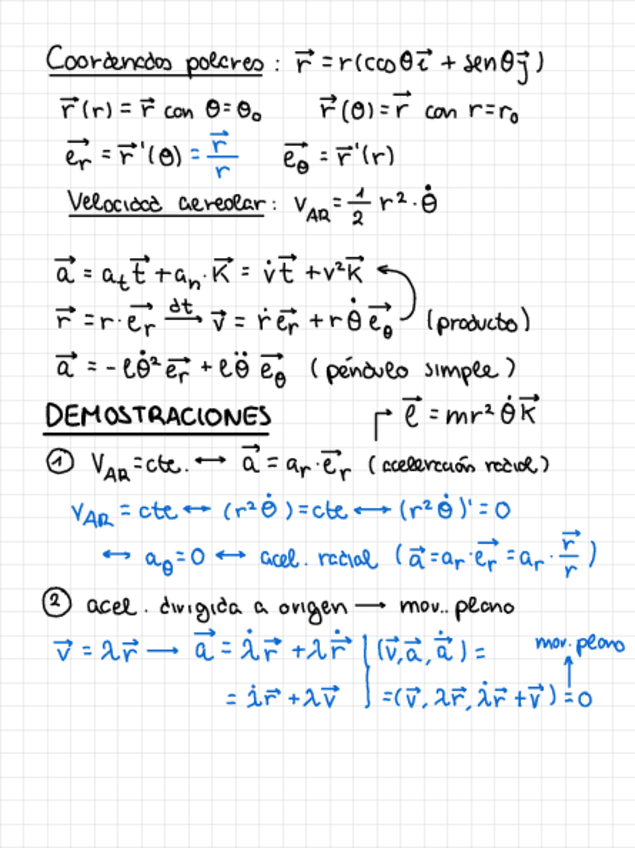 Coordenadas polares : r⃗ = r(cosθ i⃗ + senθ j⃗)
r⃗(r) = r⃗ con θ=θ₀ r⃗(θ) = r⃗ con r=r₀
e⃗ᵣ = r⃗'(θ) = r⃗/r e⃗_θ = r⃗'(r)
Velocidad aereolar : V_AR = 1/2 r² · θ̇
a⃗ = aₜ t⃗ + aₙ · K⃗ = v̇ t⃗ + v² K⃗
r⃗ = r · e⃗ᵣ —dt→ v⃗ = ṙ e⃗ᵣ + r θ̇ e⃗_θ (producto)
a⃗ = - ℓθ̇² e⃗ᵣ + ℓθ̈ e⃗_θ (péndulo simple)
DEMOSTRACIONES ↱ ℓ⃗ = mr² θ̇ K⃗
① V_AR = cte. ↔ a⃗ = aᵣ · e⃗ᵣ (aceleración radial)
V_AR = cte ↔ (r² θ̇) = cte ↔ (r² θ̇)' = 0
↔ a_θ = 0 ↔ acel. radial (a⃗ = aᵣ · e⃗ᵣ = aᵣ · r⃗/r)
② acel. dirigida a origen → mov. plano
v⃗ = λr⃗ → a⃗ = λ̇r⃗ + λṙ⃗ | (v⃗, a⃗, ȧ⃗) = mov. plano
= λ̇r⃗ + λv⃗ | = (v⃗, λr⃗, λ̇r⃗ + v⃗) = 0